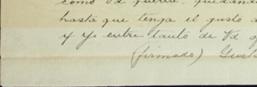 como Vd quiera, quedando
hasta que tenga el gusto d
y yo entre tanto de Vd af
(firmado) Gust